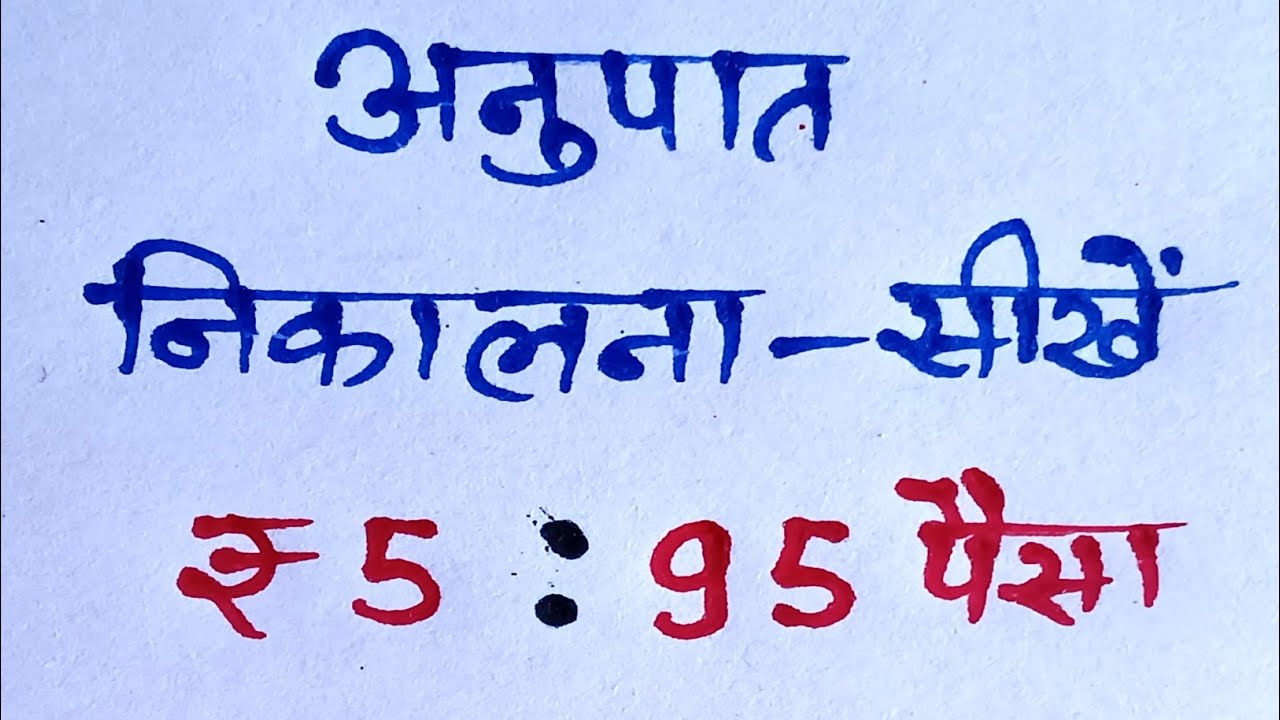 अनुपात
निकालना - सीखें
₹ 5 : 95 पैसा